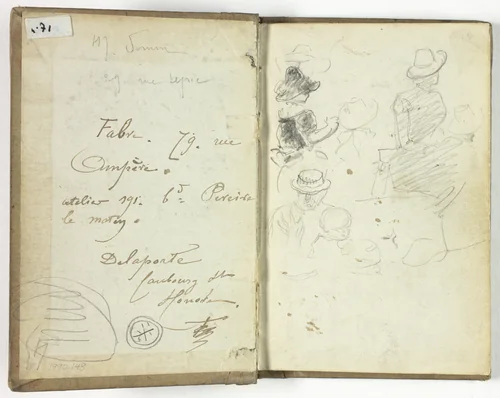 v.71
rue Lepic
Fabre. 79. rue
Ampère.
atelier 191. bd Pereire
le matin.
Delaporte
faubourg St
Honoré.